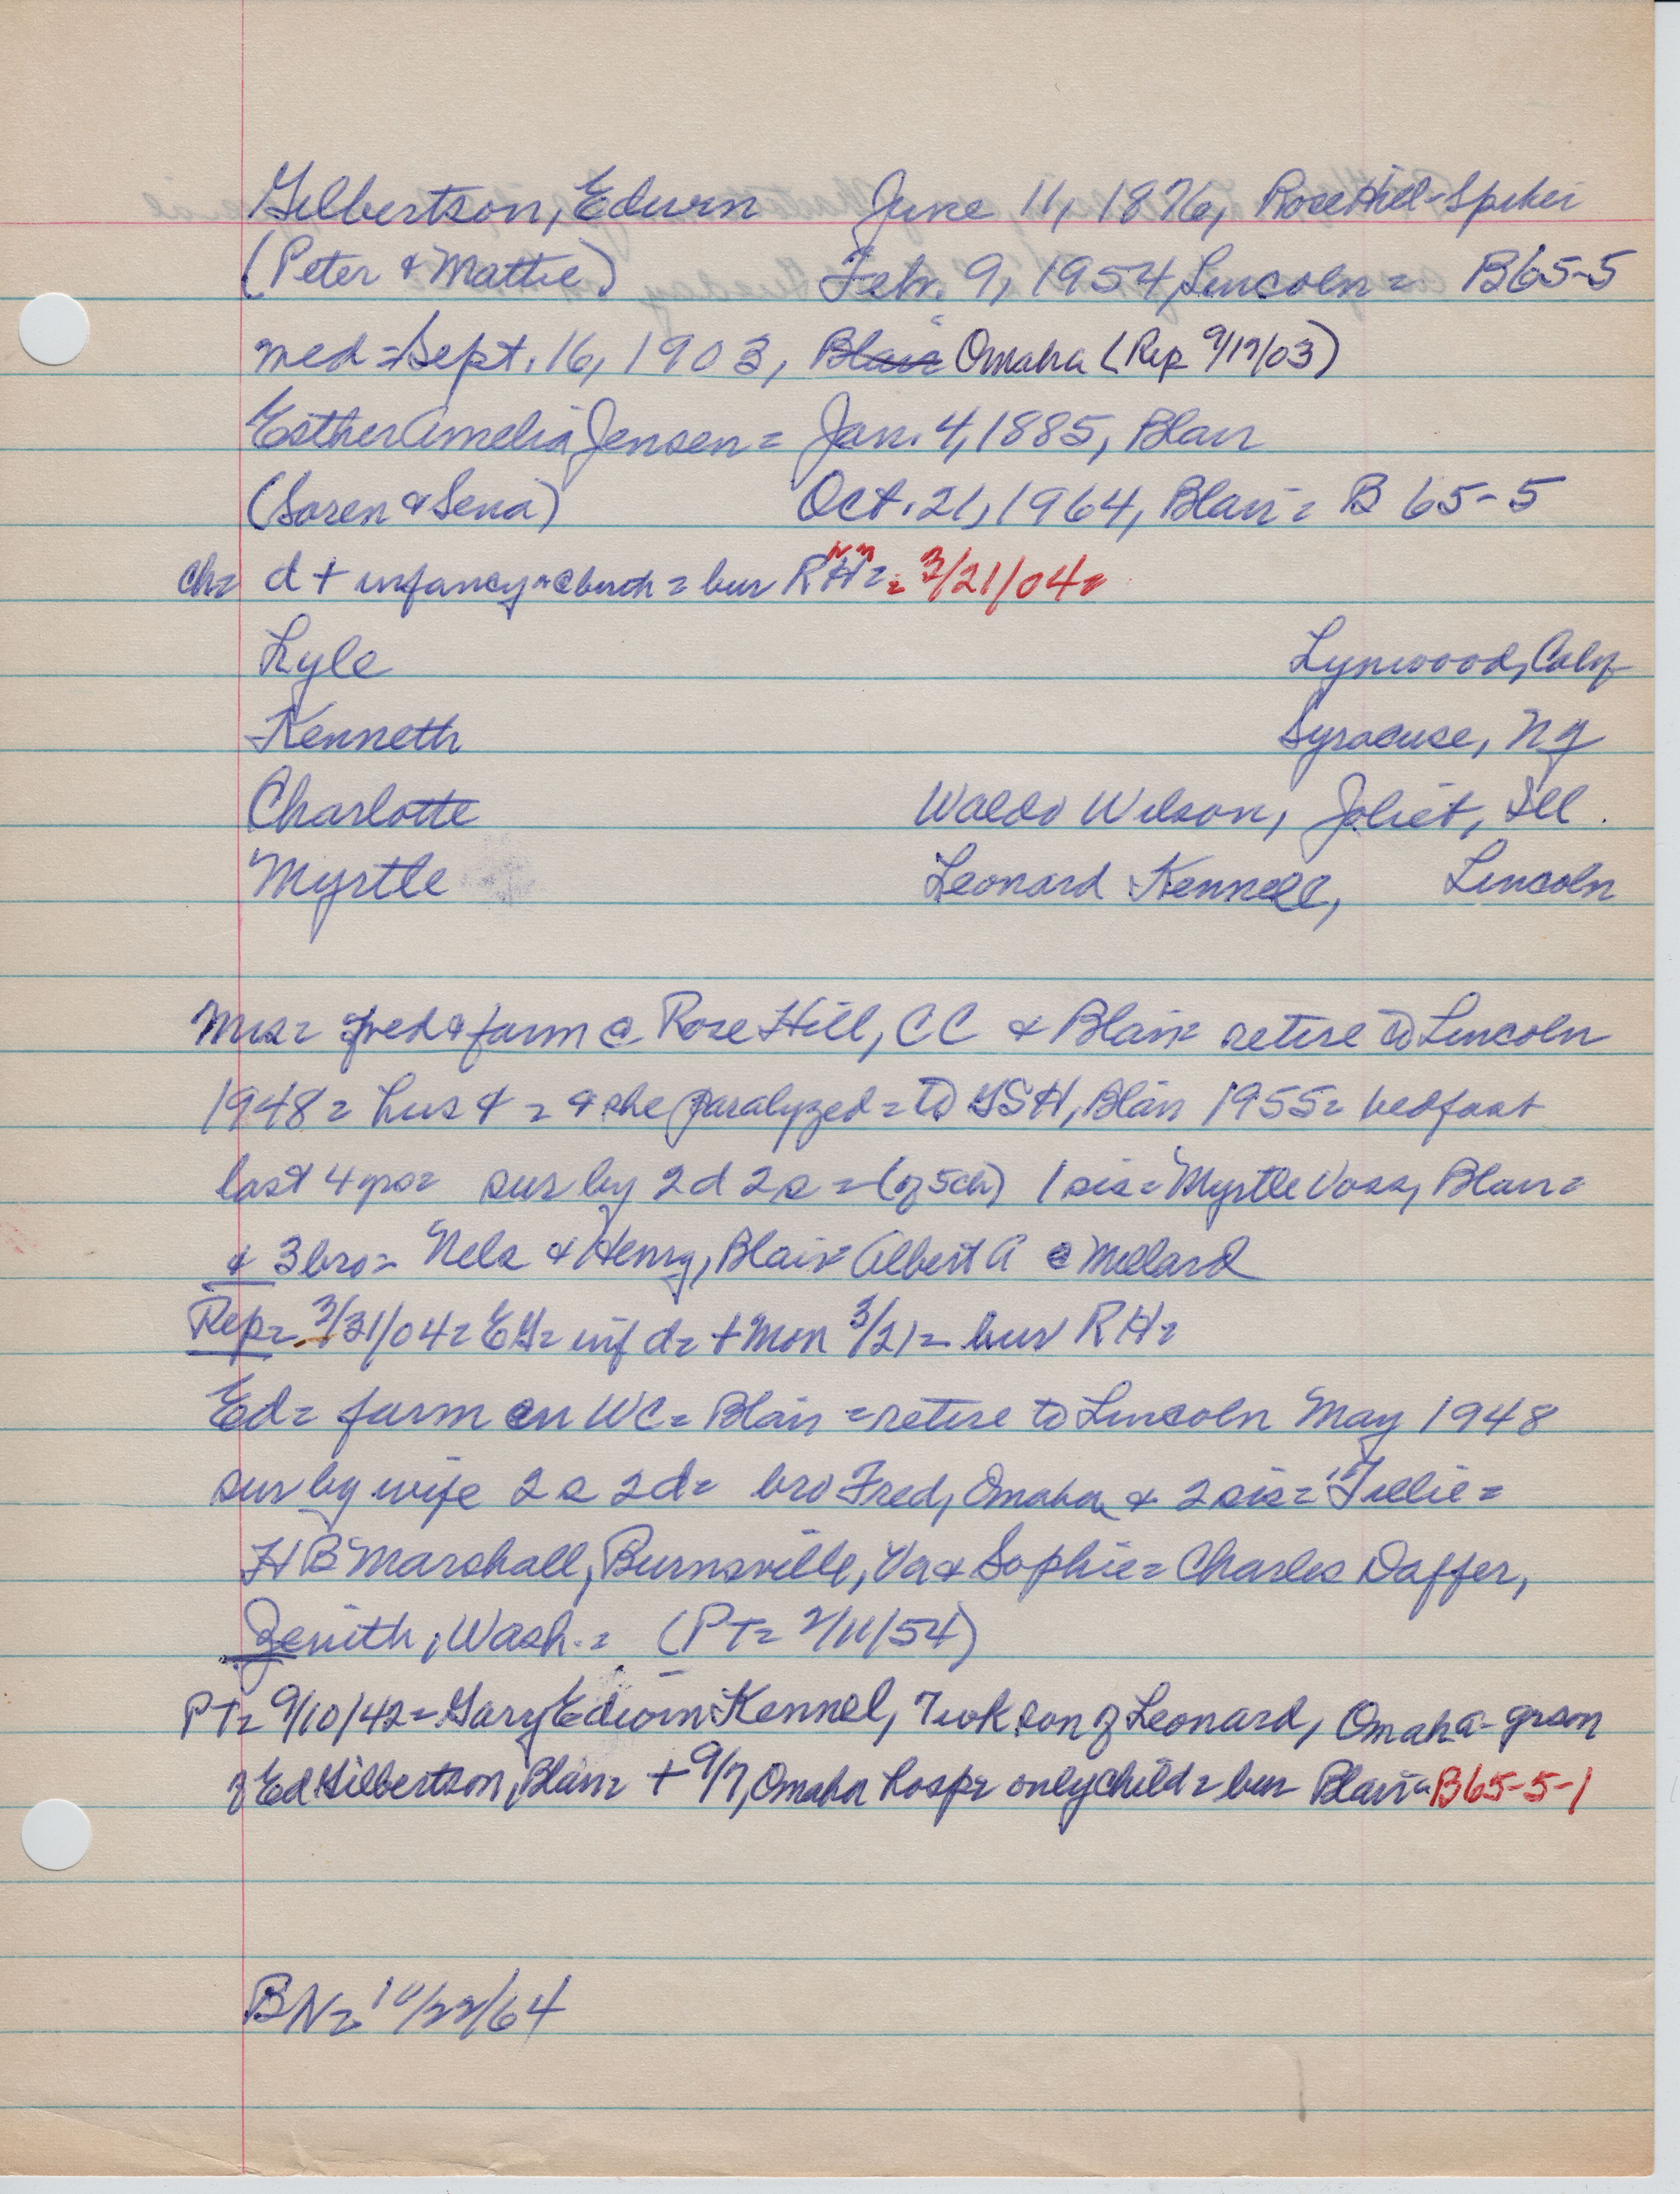 Gilbertson, Edwin June 11, 1876, Rose Hill-Spiker
(Peter & Mattie) Feb. 9, 1954, Lincoln = B65-5
med = Sept. 16, 1903, Blair Omaha (Rep 9/17/03)
Esther Amelia Jensen = Jan. 4, 1885, Blair
(Soren & Sena) Oct. 21, 1964, Blair = B 65-5
Ch= d + infancy = = bur RH = = 3/21/04 =
Lyle Lynwood, Calif
Kenneth Syracuse, NY
Charlotte Waldo Wilson, Joliet, Ill.
Myrtle Leonard Kennell, Lincoln
Mrs = & farm @ Rose Hill, CC & Blair = retire to Lincoln
1948 = hus + = & she paralyzed = to GSH, Blair 1955 = bedfast
last 4 yrs = sur by 2d 2s = (of 5ch) 1 sis = Myrtle Voss, Blair =
& 3 bro = Nels & Henry, Blair = Albert A @ Millard
Rep = 3/31/04 = EG = inf d = + Mon 3/21 = bur RH =
Ed = farm in WC = Blair = retire to Lincoln May 1948
sur by wife 2s 2d = bro Fred, Omaha & 2 sis = Tillie =
HB Marshall, Burnsville, Va & Sophie = Charles Daffer,
Zenith, Wash. = (PT = 2/11/54)
PT = 9/10/42 = Gary Edwin Kennel, 7 wk son of Leonard, Omaha - grson
of Ed Gilbertson, Blair = + 9/7, Omaha hosp = only child = bur Blair = B65-5-1
BN = 10/22/64